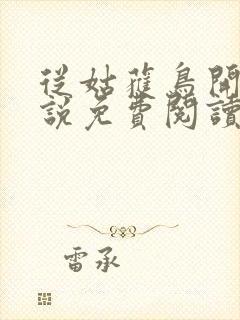 從姑蘿鳥開
說免費閱讀
雷承